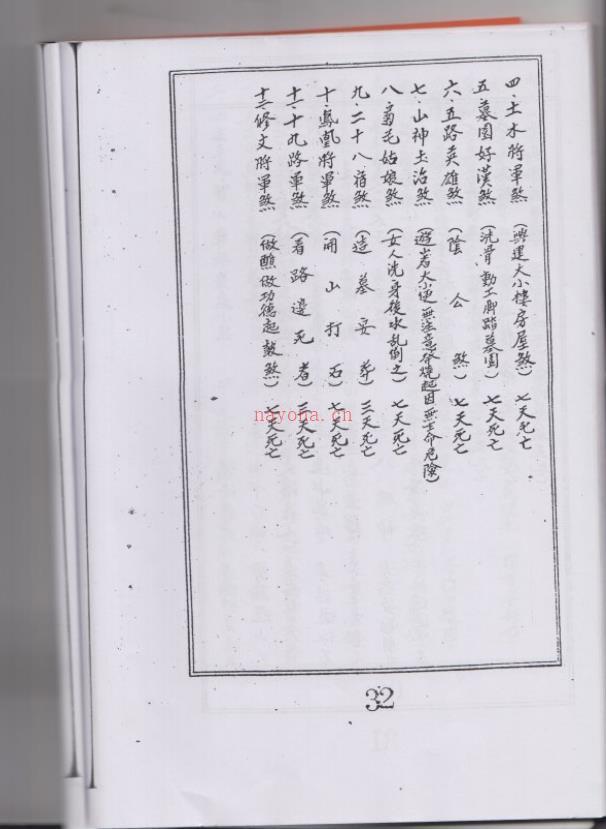 四．土水將軍煞（興建大小樓房屋煞）七天死亡
五．墓園好漢煞（洗骨動工脚踏墓園）七天死亡
六．五路英雄煞（陰公煞）七天死亡
七．山神土治煞（遊岩大小便無注意發燒 因無生命危險）
八．菊花姑娘煞（女人洗身後水乱倒之）七天死亡
九．二十八宿煞（造墓安葬）三天死亡
十．鳳凰將軍煞（開山打石）七天死亡
十一．十九路軍煞（看路邊死者）三天死亡
十二修文將軍煞（做醮做功德起鼓煞）七天死亡
nayona.cn
32